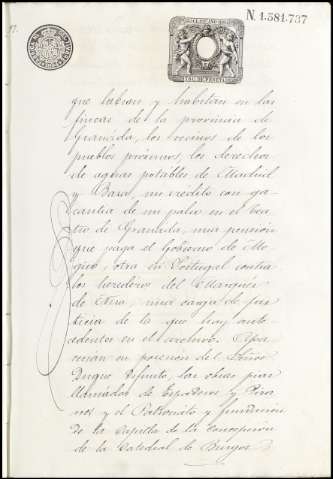 N. 1.381.737
que labran y habitan en las
fincas de la provincia de
Granada, los vecinos de los
pueblos próximos, los derechos
de aguas potables de Madrid
y Baza, un credito con ga-
rantia de un palco en el tea-
tro de Granada, una pension
que paga el Gobierno de
otra en Portugal contra
los herederos del Marques
de una carga de jus-
ticia de la que hay ante-
cedentes en el archivo.
en posesion del Señor
Duque difunto, las obras pias
llamadas de Espinosa y
y el Patronato y fundacion
de la Capilla de la Concepcion
de la Catedral de Burgos